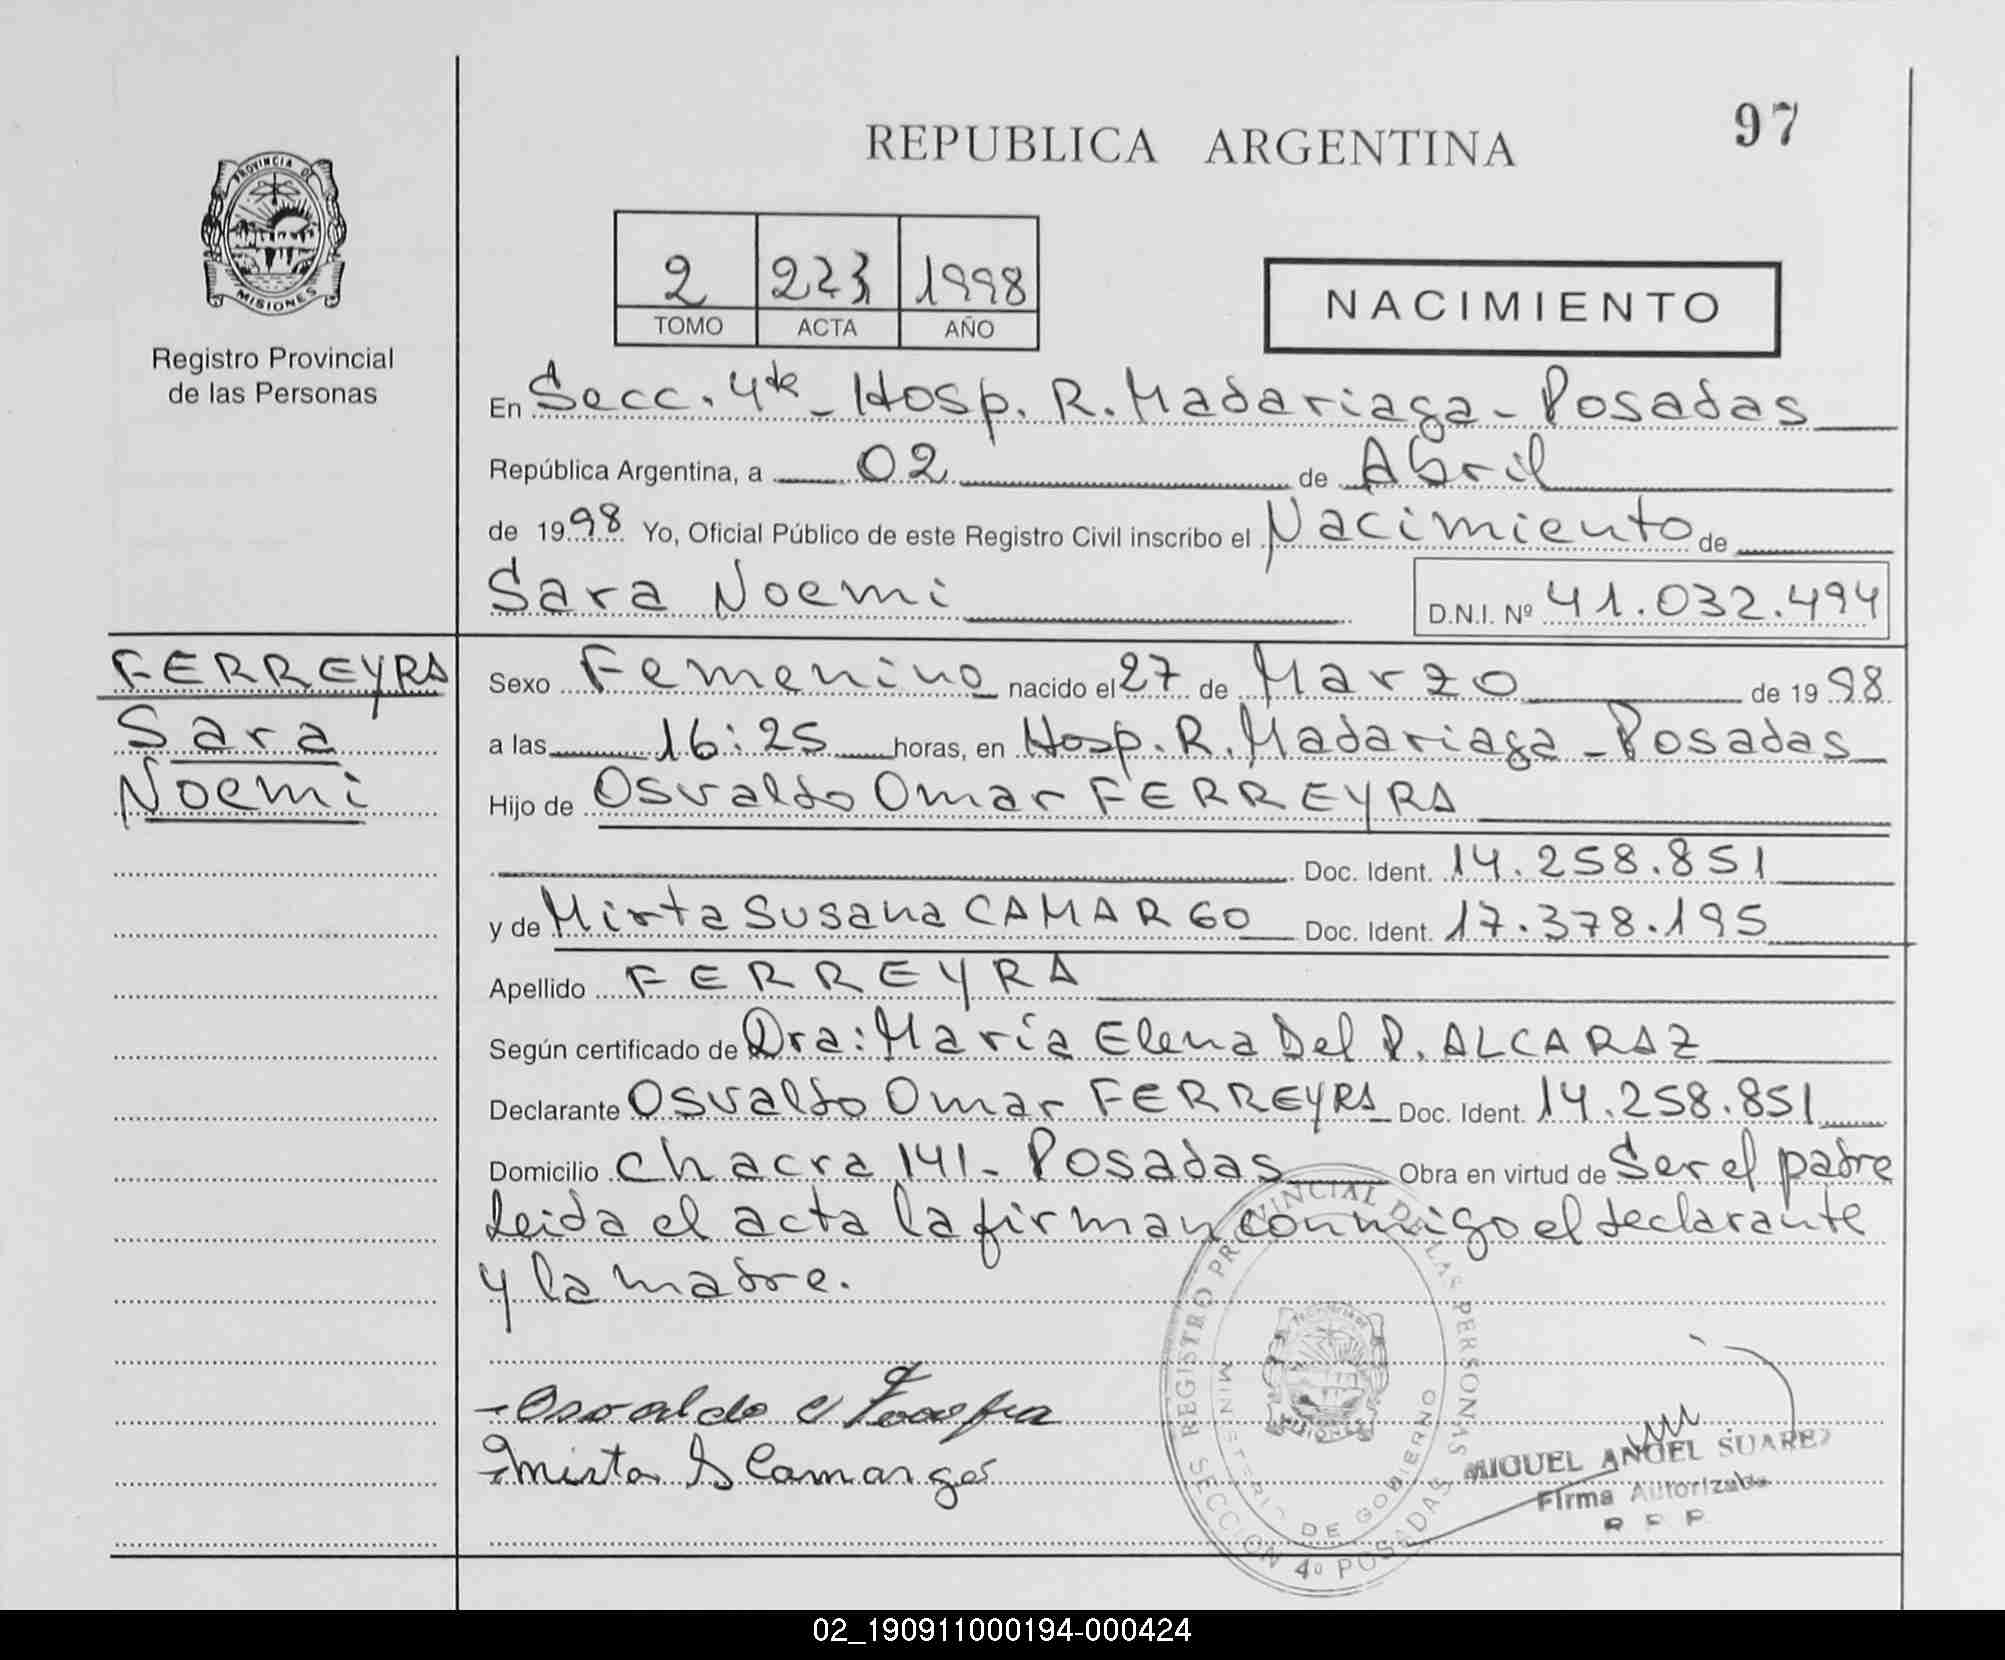 97
REPUBLICA ARGENTINA
PROVINCIA DE
MISIONES
Registro Provincial
de las Personas
2 223 1998
TOMO ACTA AÑO
NACIMIENTO
En Secc. 4ta - Hosp. R. Madariaga - Posadas
República Argentina, a 02 de Abril
de 1998 Yo, Oficial Público de este Registro Civil inscribo el Nacimiento de
Sara Noemi D.N.I. Nº 41.032.494
FERREYRA
Sara
Noemi
Sexo Femenino nacido el 27 de Marzo de 1998
a las 16:25 horas, en Hosp. R. Madariaga - Posadas
Hijo de Osvaldo Omar FERREYRA
Doc. Ident. 14.258.851
y de Mirta Susana CAMARGO Doc. Ident. 17.378.195
Apellido FERREYRA
Según certificado de Dra: María Elena Del P. ALCARAZ
Declarante Osvaldo Omar FERREYRA Doc. Ident. 14.258.851
Domicilio Chacra 141 - Posadas Obra en virtud de Ser el padre
Leida el acta la firman conmigo el declarante
y la madre.
Osvaldo
Mirta S Camargo
REGISTRO PROVINCIAL DE LAS PERSONAS
MINISTERIO DE GOBIERNO
SECCION 4º POSADAS
MIGUEL ANGEL SUAREZ
Firma Autorizada
R P P
02_190911000194-000424